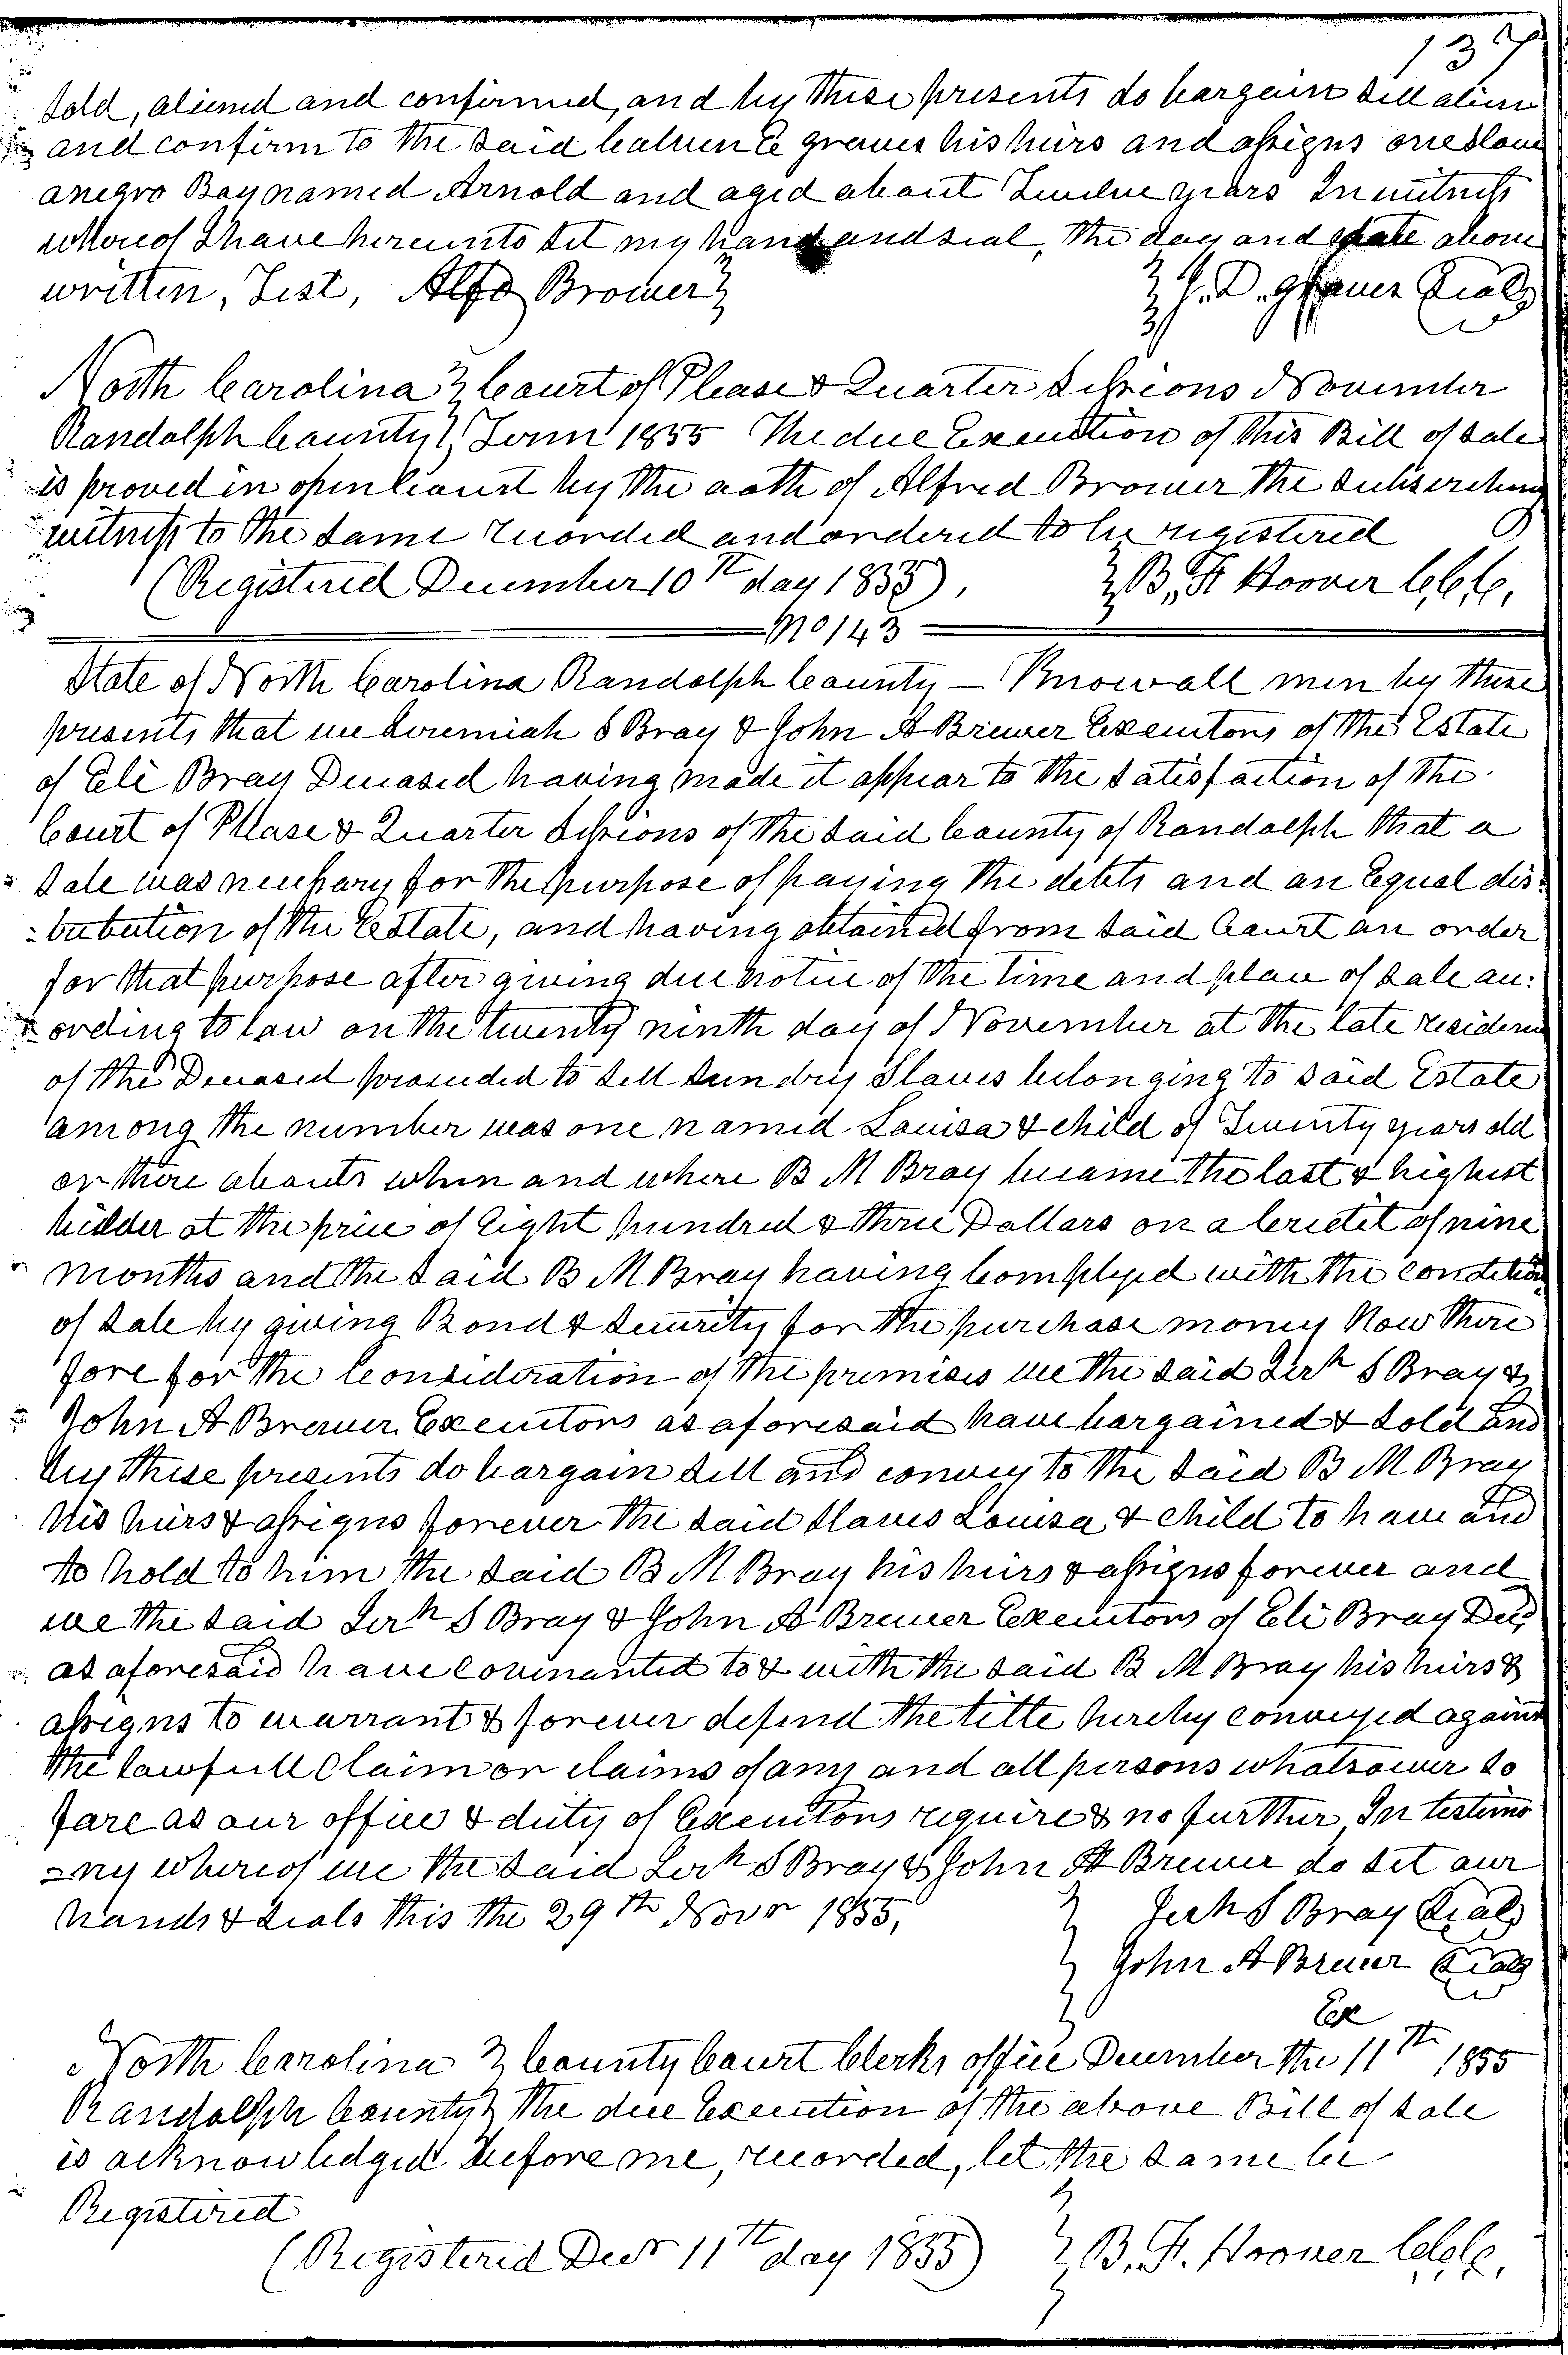 137
sold, aliened and confirmed, and by these presents do bargain sell alien
and confirm to the said Calvin E graves his heirs and assigns one slave
a negro Boy named Arnold and aged about Twelve years In witness
whereof I have hereunto set my hand and seal, the day and date above
written, Test, Alfd Brower J. D. graves Seal
North Carolina Court of Please & Quarter Sessions November
Randolph County Term 1855 The due Execution of this Bill of Sale
is proved in open Court by the oath of Alfred Brower the subscribing
witness to the same recorded and ordered to be registered
(Registered December 10th day 1855), B. F. Hoover C.C.C.
No 143
State of North Carolina Randolph County — Know all men by these
presents that we Jeremiah S Bray & John A Brewer Executors of the Estate
of Eli Bray Deceased having made it appear to the satisfaction of the
Court of Please & Quarter Sessions of the said County of Randolph that a
Sale was necessary for the purpose of paying the debts and an Equal dis-
-tribution of the Estate, and having obtained from said Court an order
for that purpose after giving due notice of the time and place of sale ac-
cording to law on the twenty ninth day of November at the late residence
of the Deceased proceeded to sell sundry Slaves belonging to said Estate
among the number was one named Louisa & child of Twenty years old
or there abouts when and where B M Bray became the last & highest
bidder at the price of Eight hundred & three Dollars on a Credit of nine
months and the said B M Bray having Complyed with the condition
of sale by giving Bond & Security for the purchase money Now there
fore for the Consideration of the premises we the said Jerh S Bray &
John A Brewer Executors as aforesaid have bargained & sold and
by these presents do bargain sell and convey to the said B M Bray
his heirs & assigns forever the said slaves Louisa & child to have and
to hold to him the said B M Bray his heirs & assigns forever and
we the said Jerh S Bray & John A Brewer Executors of Eli Bray Decd
as aforesaid have covenanted to & with the said B M Bray his heirs &
assigns to warrant & forever defend the title hereby conveyed against
the lawfull claim or claims of any and all persons whatsoever so
fare as our office & duty of Executors require & no further, In testimo
-ny whereof we the said Jerh S Bray & John A Brewer do set our
hands & seals this the 29th Novr 1855, Jerh S Bray Seal
John A Brewer Seal
Ex
North Carolina County Court Clerks office December the 11th 1855
Randolph County The due Execution of the above Bill of Sale
is acknowledged before me, recorded, let the same be
Registered
(Registered Decr 11th day 1855) B. F. Hoover C.C.C.